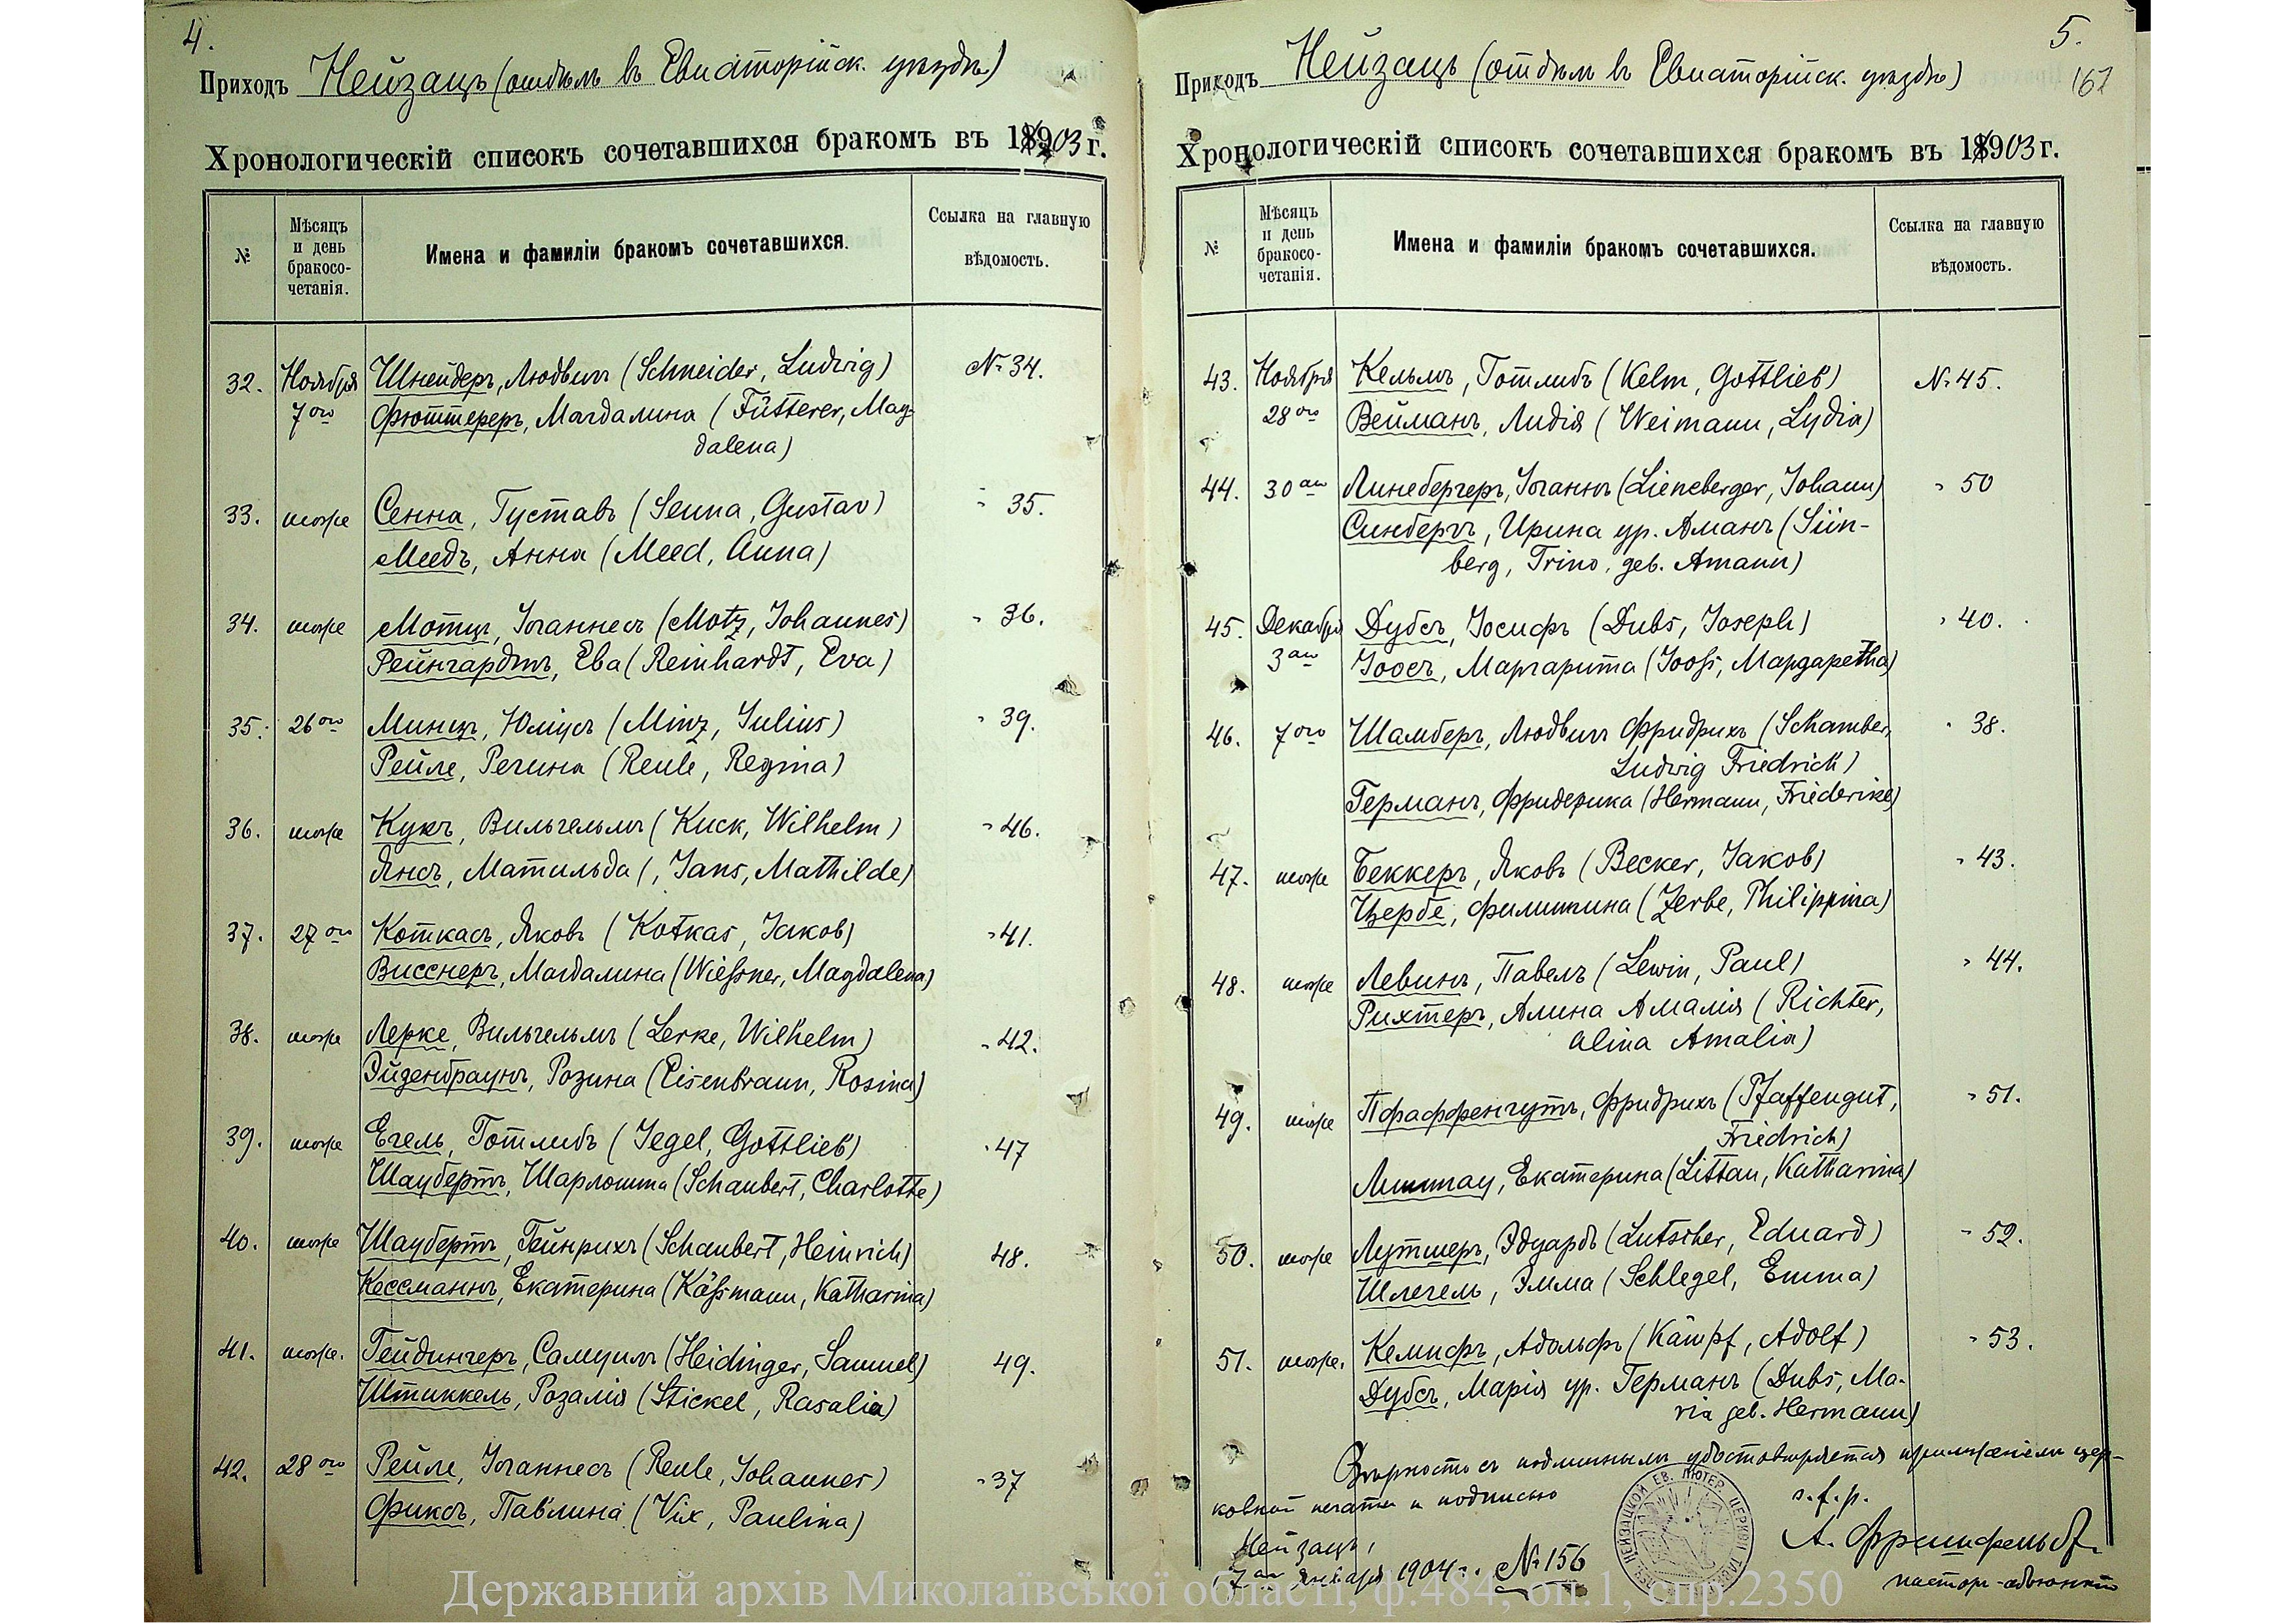 4.
Приходъ Нейзацъ (отдѣлъ въ Евпаторійск. уѣздѣ)
Хронологическій списокъ сочетавшихся бракомъ въ 1903 г.
№
Мѣсяцъ и день бракосо-четанія.
Имена и фамиліи бракомъ сочетавшихся.
Ссылка на главную вѣдомость.
32. Ноября Шнейдеръ, Людвигъ (Schneider, Ludwig) № 34.
7го Фюттереръ, Магдалина (Fütterer, Mag-
dalena)
33. тоже Сенна, Густавъ (Senna, Gustav) " 35.
Меедъ, Анна (Meed, Anna)
34. тоже Мотцъ, Іоганнесъ (Motz, Johannes) " 36.
Рейнгардтъ, Ева (Reinhardt, Eva)
35. 26го Минцъ, Юліусъ (Minz, Julius) " 39.
Рейле, Регина (Reule, Regina)
36. тоже Кукъ, Вильгельмъ (Kuck, Wilhelm) " 46.
Янсъ, Матильда (, Jans, Mathilde)
37. 27го Коткасъ, Яковъ (Kotkas, Jakob) " 41.
Висснеръ, Магдалина (Wießner, Magdalena)
38. тоже Лерке, Вильгельмъ (Lerke, Wilhelm) " 42.
Эйзенбраунъ, Розина (Eisenbraun, Rosina)
39. тоже Егель, Готлибъ (Jegel, Gottlieb) " 47
Шаубертъ, Шарлотта (Schaubert, Charlotte)
40. тоже Шаубертъ, Гейнрихъ (Schaubert, Heinrich) 48.
Кессманнъ, Екатерина (Käßmann, Katharina)
41. тоже. Гейдингеръ, Самуилъ (Heidinger, Samuel) 49.
Штиккель, Розалія (Stickel, Rasalia)
42. 28го Рейле, Іоганнесъ (Reule, Johannes) " 37
Фиксъ, Павлина (Vix, Paulina)
5.
167
Приходъ Нейзацъ (отдѣлъ въ Евпаторійск. уѣздѣ)
Хронологическій списокъ сочетавшихся бракомъ въ 1903 г.
№
Мѣсяцъ и день бракосо-четанія.
Имена и фамиліи бракомъ сочетавшихся.
Ссылка на главную вѣдомость.
43. Ноября Кельмъ, Готлибъ (Kelm, Gottlieb) № 45.
28го Вейманъ, Лидія (Weimann, Lydia)
44. 30ап Линебергеръ, Іоганнъ (Lieneberger, Johann) " 50
Синбергъ, Ирина ур. Аманъ (Siin-
berg, Trino, geb. Amann)
45. Декабря Дубсъ, Іосифъ (Dubs, Joseph) " 40.
3го Іоосъ, Маргарита (Jooß, Margaretha)
46. 7го Шамберъ, Людвигъ Фридрихъ (Schamber, " 38.
Ludwig Friedrich)
Германъ, Фридерика (Hermann, Friederike)
47. тоже Беккеръ, Яковъ (Becker, Jakob) " 43.
Цербе, Филиппина (Zerbe, Philippina)
48. тоже Левинъ, Павелъ (Lewin, Paul) " 44.
Рихтеръ, Алина Амалія (Richter,
Alina Amalia)
49. тоже Пфаффенгутъ, Фридрихъ (Pfaffengut, " 51.
Friedrich)
Литтау, Екатерина (Littau, Katharina)
50. тоже Лутшеръ, Эдуардъ (Lutscher, Eduard) " 52.
Шлегель, Эмма (Schlegel, Emma)
51. тоже. Кемпфъ, Адольфъ (Kämpf, Adolf) " 53.
Дубсъ, Марія ур. Германъ (Dubs, Ma-
ria geb. Hermann)
Вѣрность съ подлиннымъ удостовѣряется приложеніемъ цер-
ковной печати и подписью
Нейзацъ,
7го января 1904 г. № 156
А.
пасторъ-адъюнктъ
НЕЙЗАЦКОЙ ЕВ. ЛЮТЕР. ЦЕРКВИ
Державний архів Миколаївської області, ф.484, оп.1, спр.2350